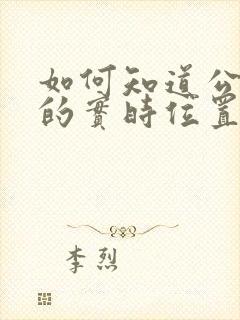 如何知道公
的實時位置
李烈